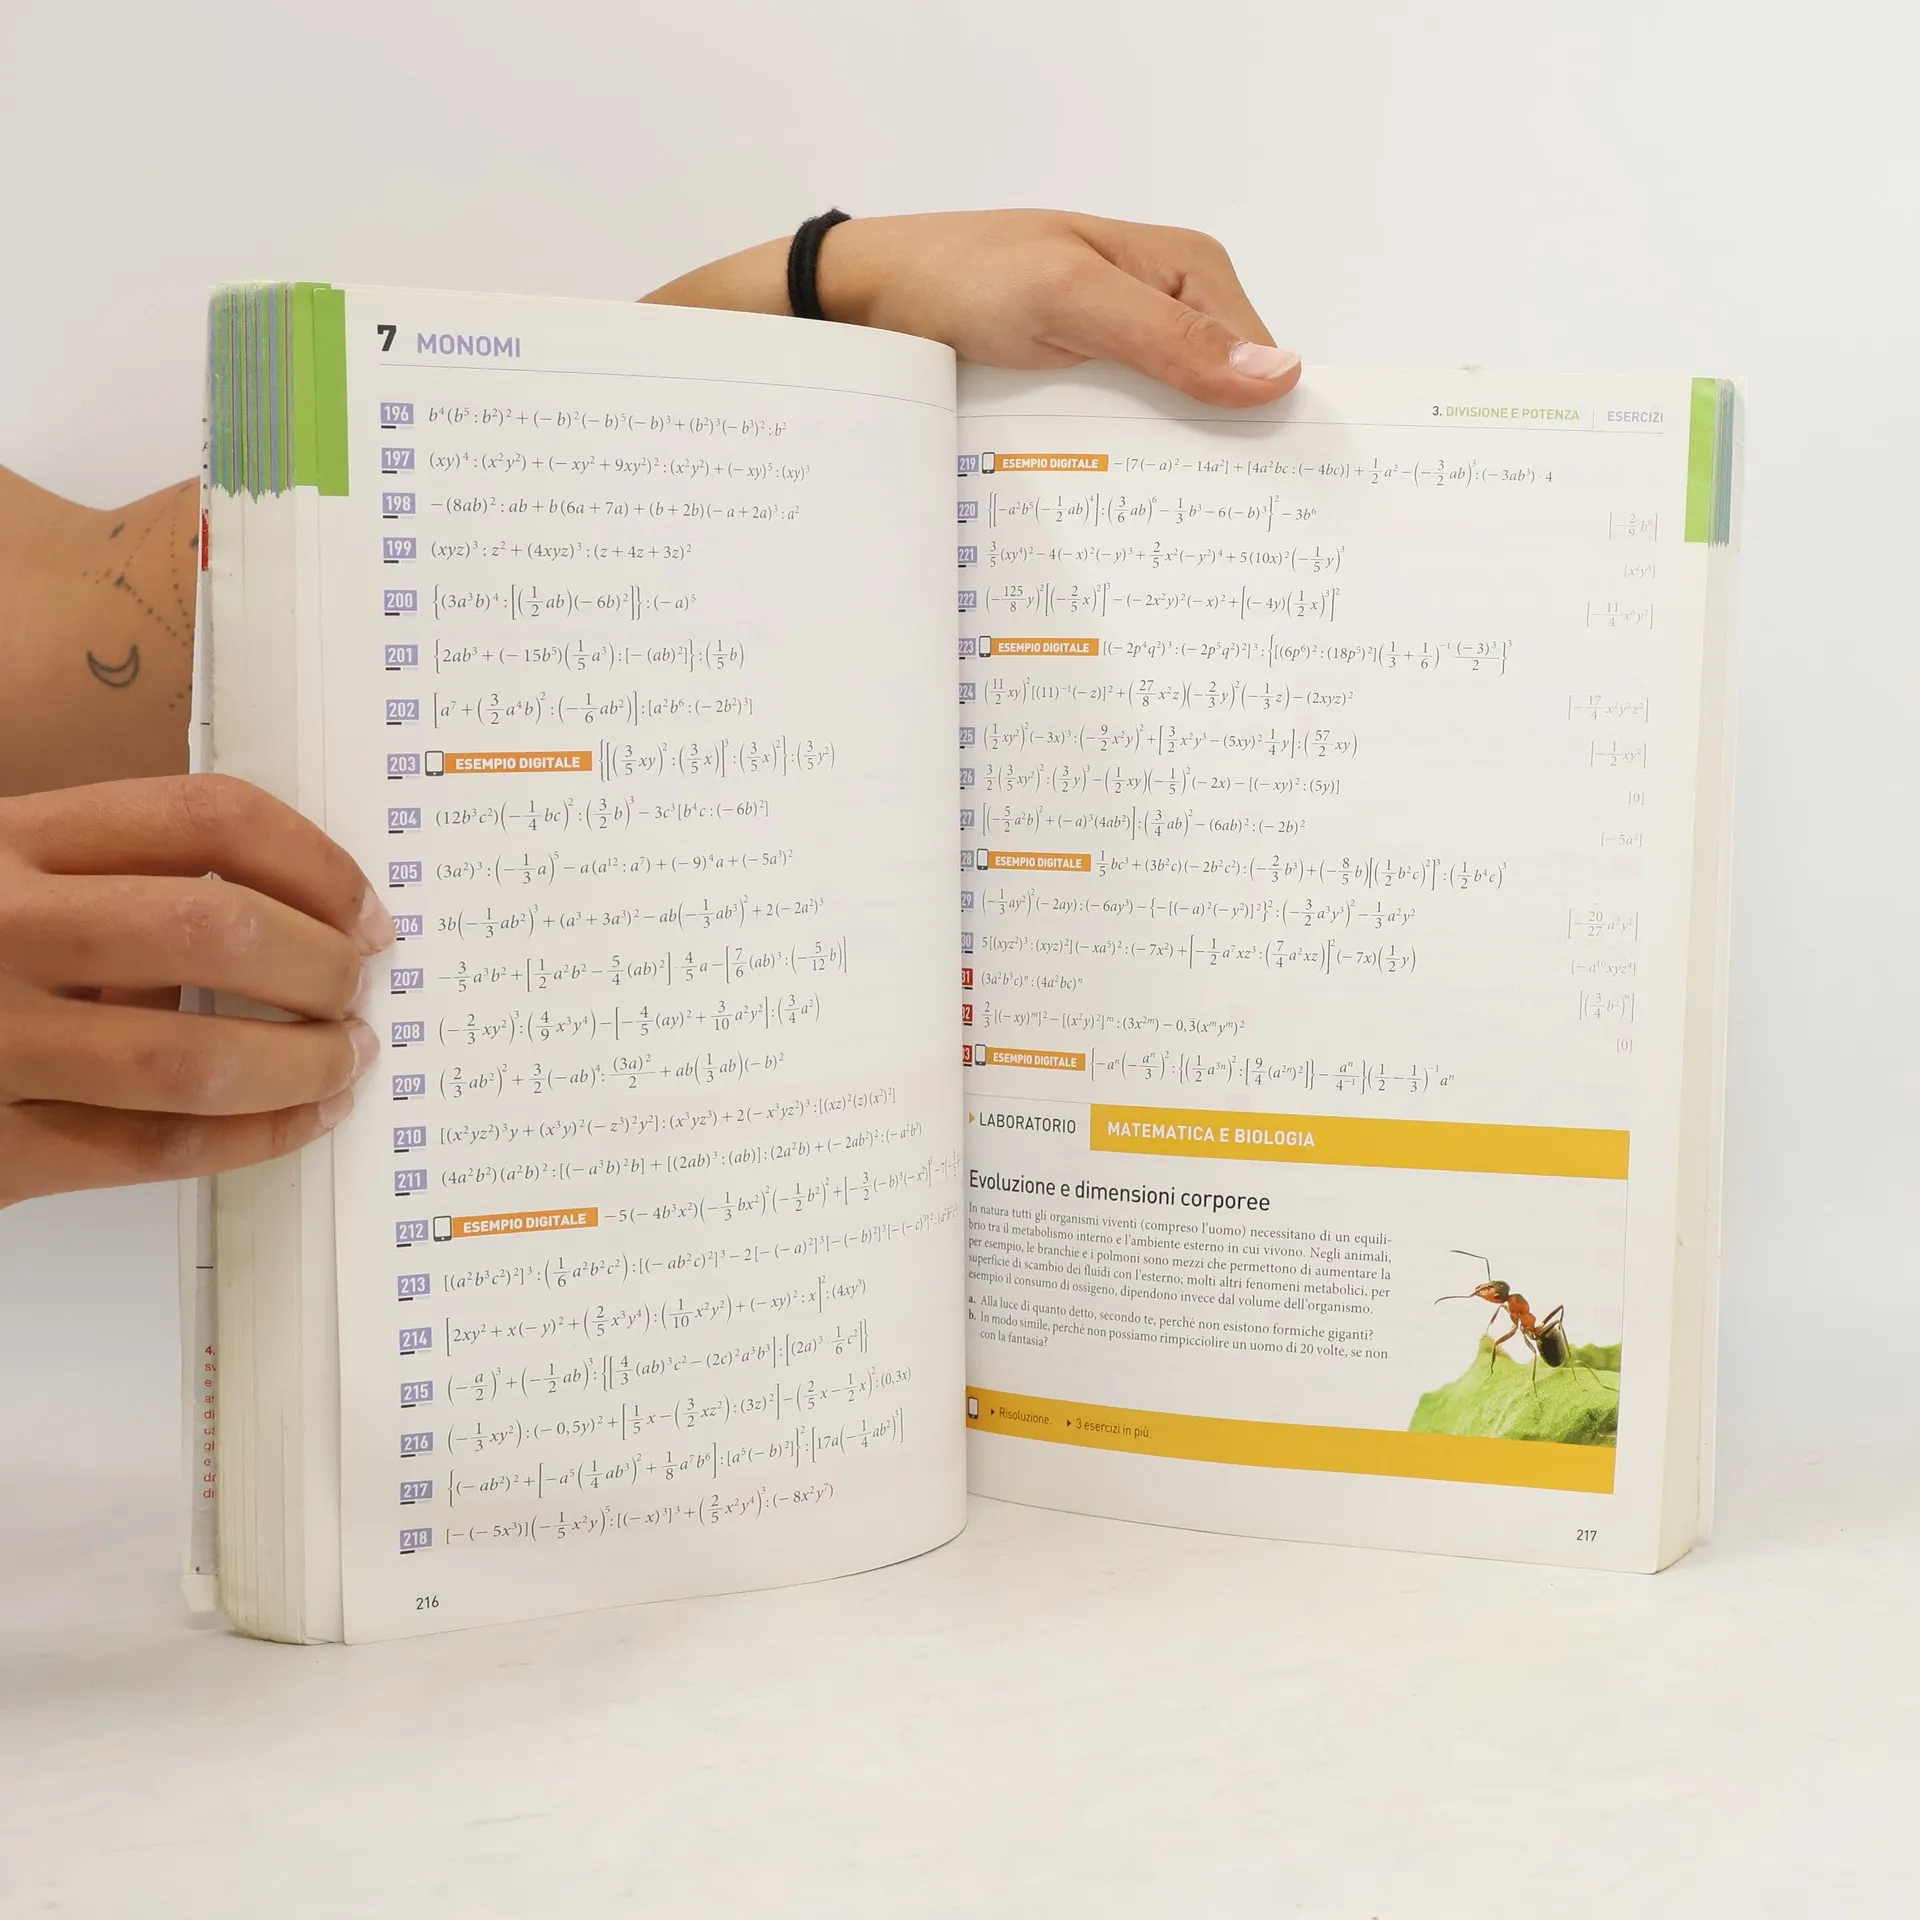 7 MONOMI
196 b⁴(b⁵ : b²)² + (− b)²(− b)⁵(− b)³ + (b²)³(− b³)² : b²
197 (xy)⁴ : (x²y²) + (− xy² + 9xy²)² : (x²y²) + (− xy)⁵ : (xy)³
198 − (8ab)² : ab + b(6a + 7a) + (b + 2b)(− a + 2a)³ : a²
199 (xyz)³ : z² + (4xyz)³ : (z + 4z + 3z)²
200 {(3a³b)⁴ : [(1/2 ab)(− 6b)²]} : (− a)⁵
201 {2ab³ + (− 15b⁵)(1/5 a³) : [− (ab)²]} : (1/5 b)
202 [a⁷ + (3/2 a⁴b)² : (− 1/6 ab²)] : [a²b⁶ : (− 2b²)³]
203 ESEMPIO DIGITALE {[(3/5 xy)² : (3/5 x)]³ : (3/5 x)²} : (3/5 y²)
204 (12b³c²)(− 1/4 bc)² : (3/2 b)³ − 3c³[b⁴c : (− 6b)²]
205 (3a²)³ : (− 1/3 a)⁵ − a(a¹² : a⁷) + (− 9)⁴a + (− 5a³)²
206 3b(− 1/3 ab²)³ + (a³ + 3a³)² − ab(− 1/3 ab³)² + 2(− 2a²)³
207 − 3/5 a³b² + [1/2 a²b² − 5/4 (ab)²] · 4/5 a − [7/6 (ab)³ : (− 5/12 b)]
208 (− 2/3 xy²)³ : (4/9 x³y⁴) − [− 4/5 (ay)² + 3/10 a²y²] : (3/4 a²)
209 (2/3 ab²)² + 3/2 (−ab)⁴ : (3a)²/2 + ab(1/3 ab)(− b)²
210 [(x²yz²)³y + (x³y)²(− z³)²y²] : (x³yz³) + 2(− x³yz²)³ : [(xz)²(z)(x²)²]
211 (4a²b²)(a²b)² : [(− a³b)²b] + [(2ab)³ : (ab)] : (2a²b) + (− 2ab²)² : (− a²b³)
212 ESEMPIO DIGITALE − 5(− 4b³x²)(− 1/3 bx²)²(− 1/2 b²)² + [− 3/2 (− b)³(− x²)]³ − 7
213 [(a²b³c²)²]³ : (1/6 a²b²c²) : [(− ab²c)²]³ − 2[− (− a)²]³[− (− b)²]³[− (− c)³]²
214 [2xy² + x(− y)² + (2/5 x³y⁴) : (1/10 x²y²) + (− xy)² : x]² : (4xy³)
215 (− a/2)³ + (− 1/2 ab)³ : {[4/3 (ab)³c² − (2c)²a³b³] : [(2a)³ · 1/6 c²]}
216 (− 1/3 xy²) : (− 0,5y)² + [1/5 x − (3/2 xz²) : (3z)²] − (2/5 x − 1/2 x)² : (0,3x)
217 {(− ab²)² + [− a⁵(1/4 ab³)² + 1/8 a⁷b⁶] : [a⁵(− b)²]}² : [17a(− 1/4 ab²)³]
218 [− (− 5x³)](− 1/5 x²y)⁵ : [(− x)³]³ + (2/5 x²y⁴)³ : (− 8x²y⁷)
216
3. DIVISIONE E POTENZA ESERCIZI
219 ESEMPIO DIGITALE − [7(− a)² − 14a²] + [4a²bc : (− 4bc)] + 1/2 a² − (− 3/2 ab)³ : (− 3ab³) · 4
220 {[−a²b⁵(− 1/2 ab)⁴] : (3/6 ab)⁶ − 1/3 b³ − 6(− b)³}² − 3b⁶ [− 2/9 b⁶]
221 3/5 (xy⁴)² − 4(− x)²(− y)³ + 2/5 x²(− y²)⁴ + 5(10x)²(− 1/5 y)³ [x²y⁸]
222 (− 125/8 y)²[(− 2/5 x)²]³ − (− 2x²y)²(− x)² + [(− 4y)(1/2 x)³]² [− 11/4 x⁶y²]
223 ESEMPIO DIGITALE [(− 2p⁴q²)³ : (− 2p⁵q²)²]³ : {[(6p⁶)² : (18p⁵)²](1/3 + 1/6)⁻¹ (− 3)³/2}³
224 (11/2 xy)²[(11)⁻¹(− z)]² + (27/8 x²z)(− 2/3 y)²(− 1/3 z) − (2xyz)² [− 17/4 x²y²z²]
225 (1/2 xy²)²(− 3x)³ : (− 9/2 x²y)² + [3/2 x²y³ − (5xy)² 1/4 y] : (57/2 xy) [− 1/2 xy²]
26 3/2 (3/5 xy²)² : (3/2 y)³ − (1/2 xy)(− 1/5)²(− 2x) − [(− xy)² : (5y)] [0]
27 [(− 5/2 a²b)² + (− a)³(4ab²)] : (3/4 ab)² − (6ab)² : (− 2b)² [− 5a²]
28 ESEMPIO DIGITALE 1/5 bc³ + (3b²c)(− 2b²c²) : (− 2/3 b³) + (− 8/5 b)[(1/2 b²c)²]³ : (1/2 b⁴c)³
29 (− 1/3 ay²)²(− 2ay) : (− 6ay³) − {− [(− a)²(− y²)]²}² : (− 3/2 a³y³)² − 1/3 a²y² [− 20/27 a²y²]
30 5[(xyz²)³ : (xyz)²](− xa⁵)² : (− 7x²) + [− 1/2 a⁷xz³ : (7/4 a²xz)]²(− 7x)(1/2 y) [− a¹⁰xyz⁴]
31 (3a²b³c)ⁿ : (4a²bc)ⁿ [(3/4 b²)ⁿ]
32 2/3 [(− xy)ᵐ]² − [(x²y)²]ᵐ : (3x²ᵐ) − 0,3̄(xᵐyᵐ)² [0]
33 ESEMPIO DIGITALE {− aⁿ(− aⁿ/3)² : {(1/2 a³ⁿ)² : [9/4 (a²ⁿ)²]} − aⁿ/4⁻¹}(1/2 − 1/3)⁻¹ aⁿ
LABORATORIO MATEMATICA E BIOLOGIA
Evoluzione e dimensioni corporee
In natura tutti gli organismi viventi (compreso l'uomo) necessitano di un equili-
brio tra il metabolismo interno e l'ambiente esterno in cui vivono. Negli animali,
per esempio, le branchie e i polmoni sono mezzi che permettono di aumentare la
superficie di scambio dei fluidi con l'esterno; molti altri fenomeni metabolici, per
esempio il consumo di ossigeno, dipendono invece dal volume dell'organismo.
a. Alla luce di quanto detto, secondo te, perché non esistono formiche giganti?
b. In modo simile, perché non possiamo rimpicciolire un uomo di 20 volte, se non
con la fantasia?
Risoluzione. 3 esercizi in più.
217